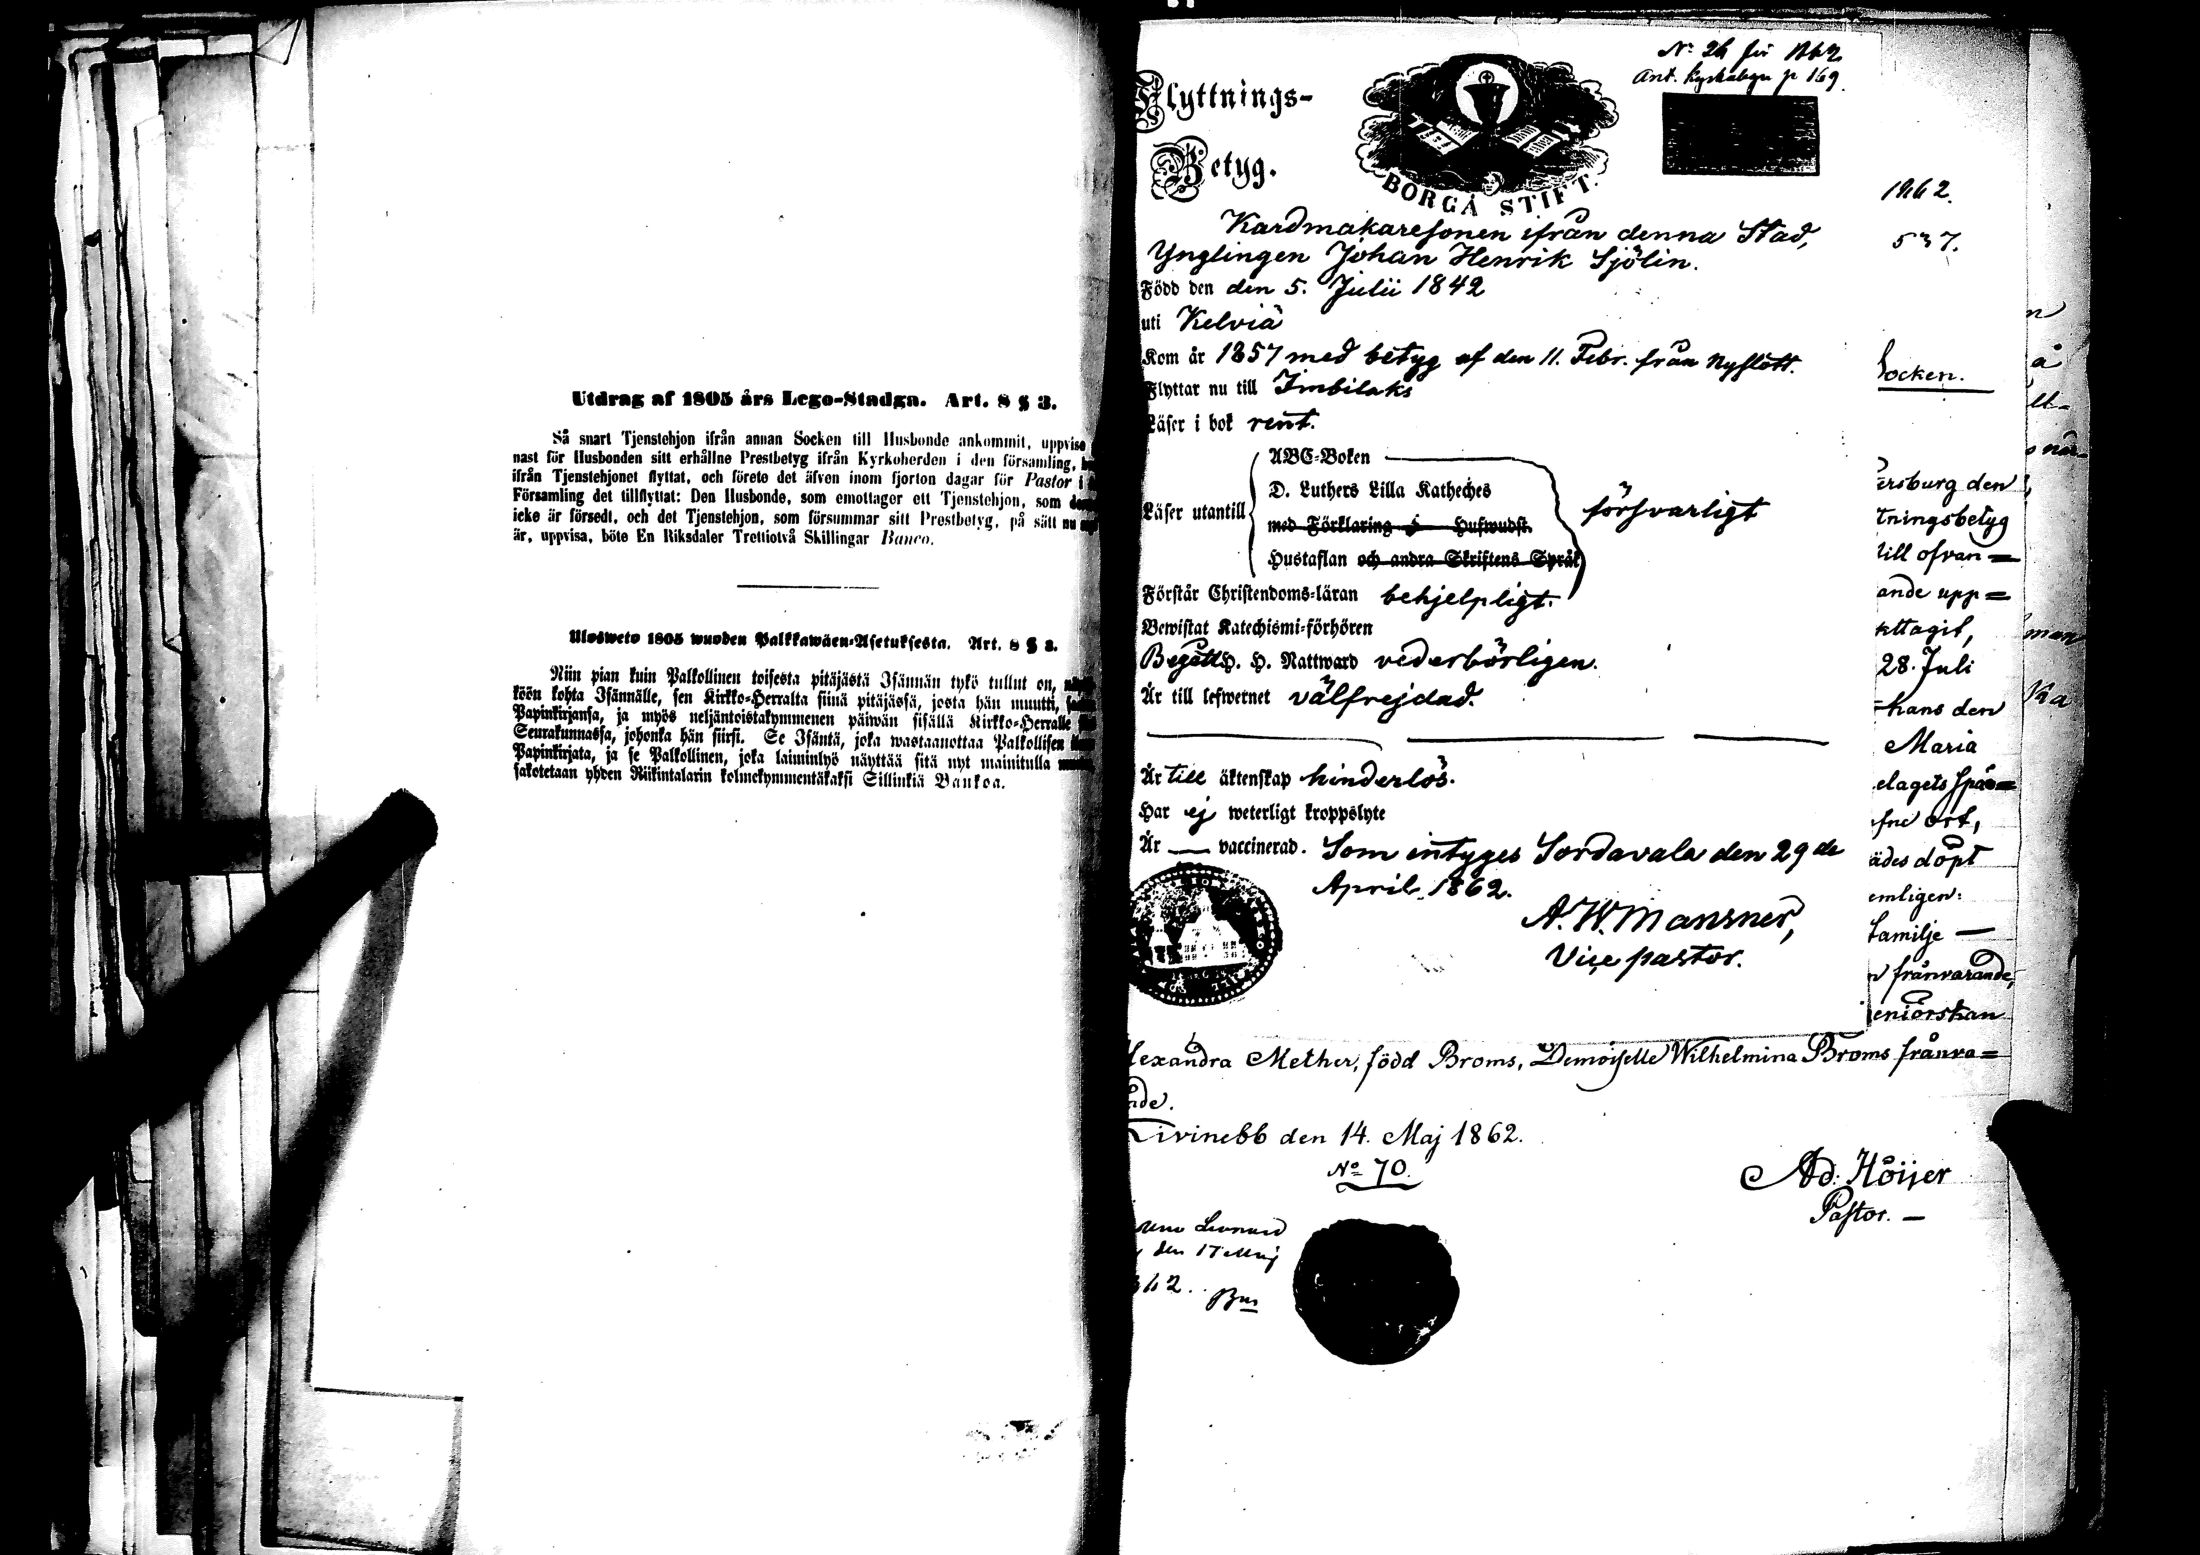 Utdrag af 1805 års Lego-Stadga. Art. 8 § 3.
Så snart Tjenstehjon ifrån annan Socken till Husbonde ankommit, uppvise
nast för Husbonden sitt erhållne Prestbetyg ifrån Kyrkoherden i den församling,
ifrån Tjenstehjonet flyttat, och förete det äfven inom fjorton dagar för Pastor i
Församling det tillflyttat: Den Husbonde, som emottager ett Tjenstehjon, som
icke är försedt, och det Tjenstehjon, som försummar sitt Prestbetyg, på sätt nu
är, uppvisa, böte En Riksdaler Trettiotvå Skillingar Banco.
Ulosweto 1805 wuoden Palkkawäen-Asetuksesta. Art. 8 § 3.
Niin pian kuin Palkollinen toisesta pitäjästä Isännän tykö tullut on,
köön kohta Isännälle, sen Kirkko-Herralta siinä pitäjässä, josta hän muutti,
Papinkirjansa, ja myös neljäntoistakymmenen päiwän sisällä Kirkko-Herralle
Seurakunnassa, johonka hän siirsi. Se Isäntä, joka wastaanottaa Palkollisen
Papinkirjata, ja se Palkollinen, joka laiminlyö näyttää sitä nyt mainitulla
sakotetaan yhden Riikintalarin kolmekymmentäkaksi Sillinkiä Bankoa.
No 26 för 1862
Ant. kyrkobgn p 169.
Flyttnings-
Betyg.
BORGÅ STIFT.
1862.
537.
Kardmakaresonen ifrån denna Stad,
Ynglingen Johan Henrik Sjölin.
Född den den 5. Julii 1842
uti Kelviä
Kom år 1857 med betyg af den 11. Febr. från Nyslott.
Flyttar nu till Imbilaks
Läser i bok rent.
Socken.
Läser utantill
ABC-Boken
D. Luthers Lilla Katheches
med Förklaring o Hufwudst.
Hustaflan och andra Skriftens Språk
försvarligt
Förstår Christendoms-läran behjelpligt.
Bewistat Katechismi-förhören
Begått H. H. Nattward vederbörligen.
Är till lefwernet välfrejdad.
Är till äktenskap hinderlös.
Har ej weterligt kroppslyte
Är — vaccinerad. Som intyges Sordavala den 29de
April 1862.
A. W. Mansner,
Vice pastor.
ersburg den
tningsbetyg
till ofvan=
ande upp=
ttagit,
28. Juli
hans den
Maria
elagets spå=
fne ort,
ädes döpt
emligen:
familje —
frånvarande,
eniörskan
lexandra Mether, född Broms, Demoiselle Wilhelmina Broms frånva=
nde.
Livinebb den 14. Maj 1862.
No 70.
Ad. Höijer
Pastor. —
den 17 Maj